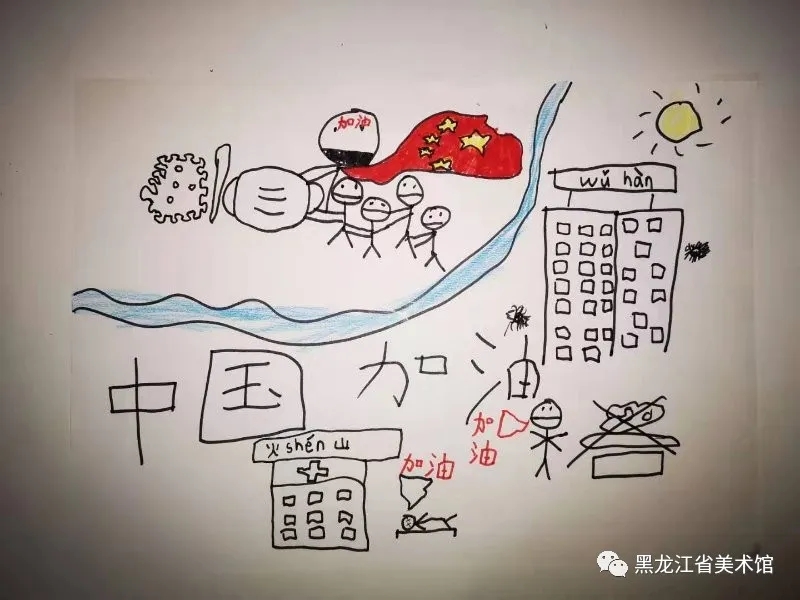 加油
wǔ hàn
中国加油
火shén山
加油
加油
黑龙江省美术馆